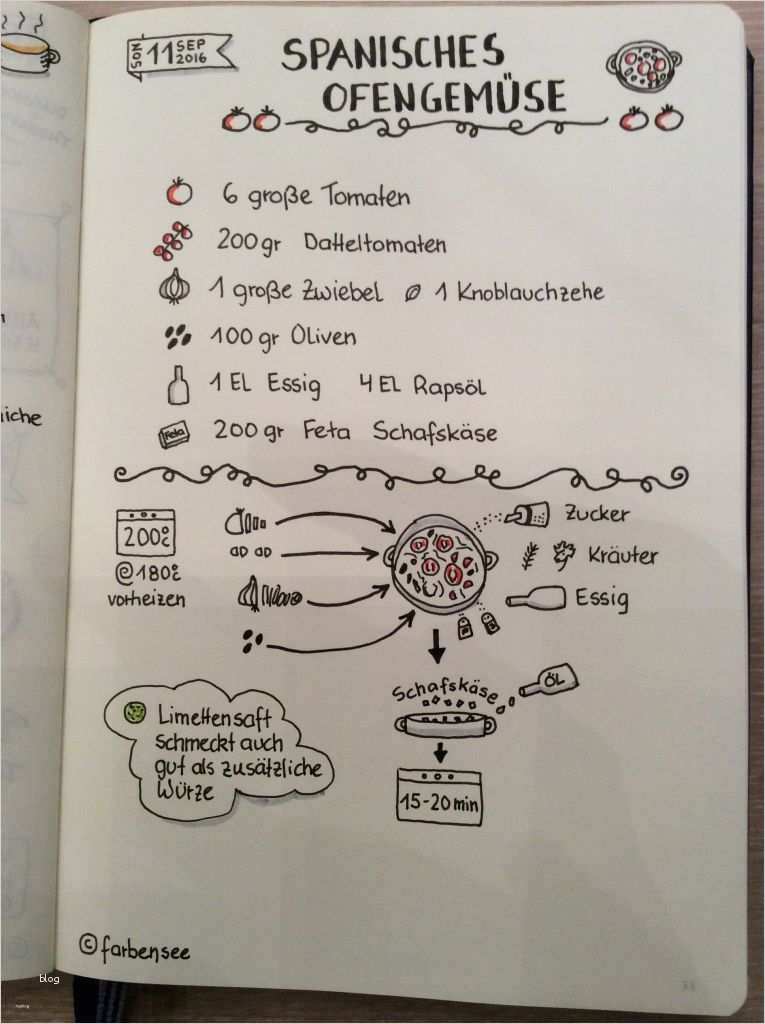 SON 11 SEP 2016
SPANISCHES
OFENGEMÜSE
6 große Tomaten
200gr Datteltomaten
1 große Zwiebel 1 Knoblauchzehe
100gr Oliven
1 EL Essig 4 EL Rapsöl
Feta
200gr Feta Schafskäse
iche
200°C
@180°C
vorheizen
Zucker
Kräuter
Essig
Schafskäse
ÖL
15-20min
Limettensaft
schmeckt auch
gut als zusätzliche
Würze
© farbensee
blog